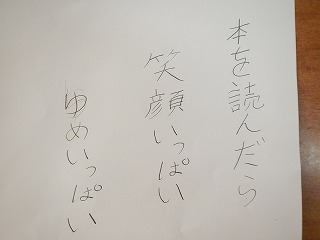 本を読んだら
笑顔いっぱい
ゆめいっぱい